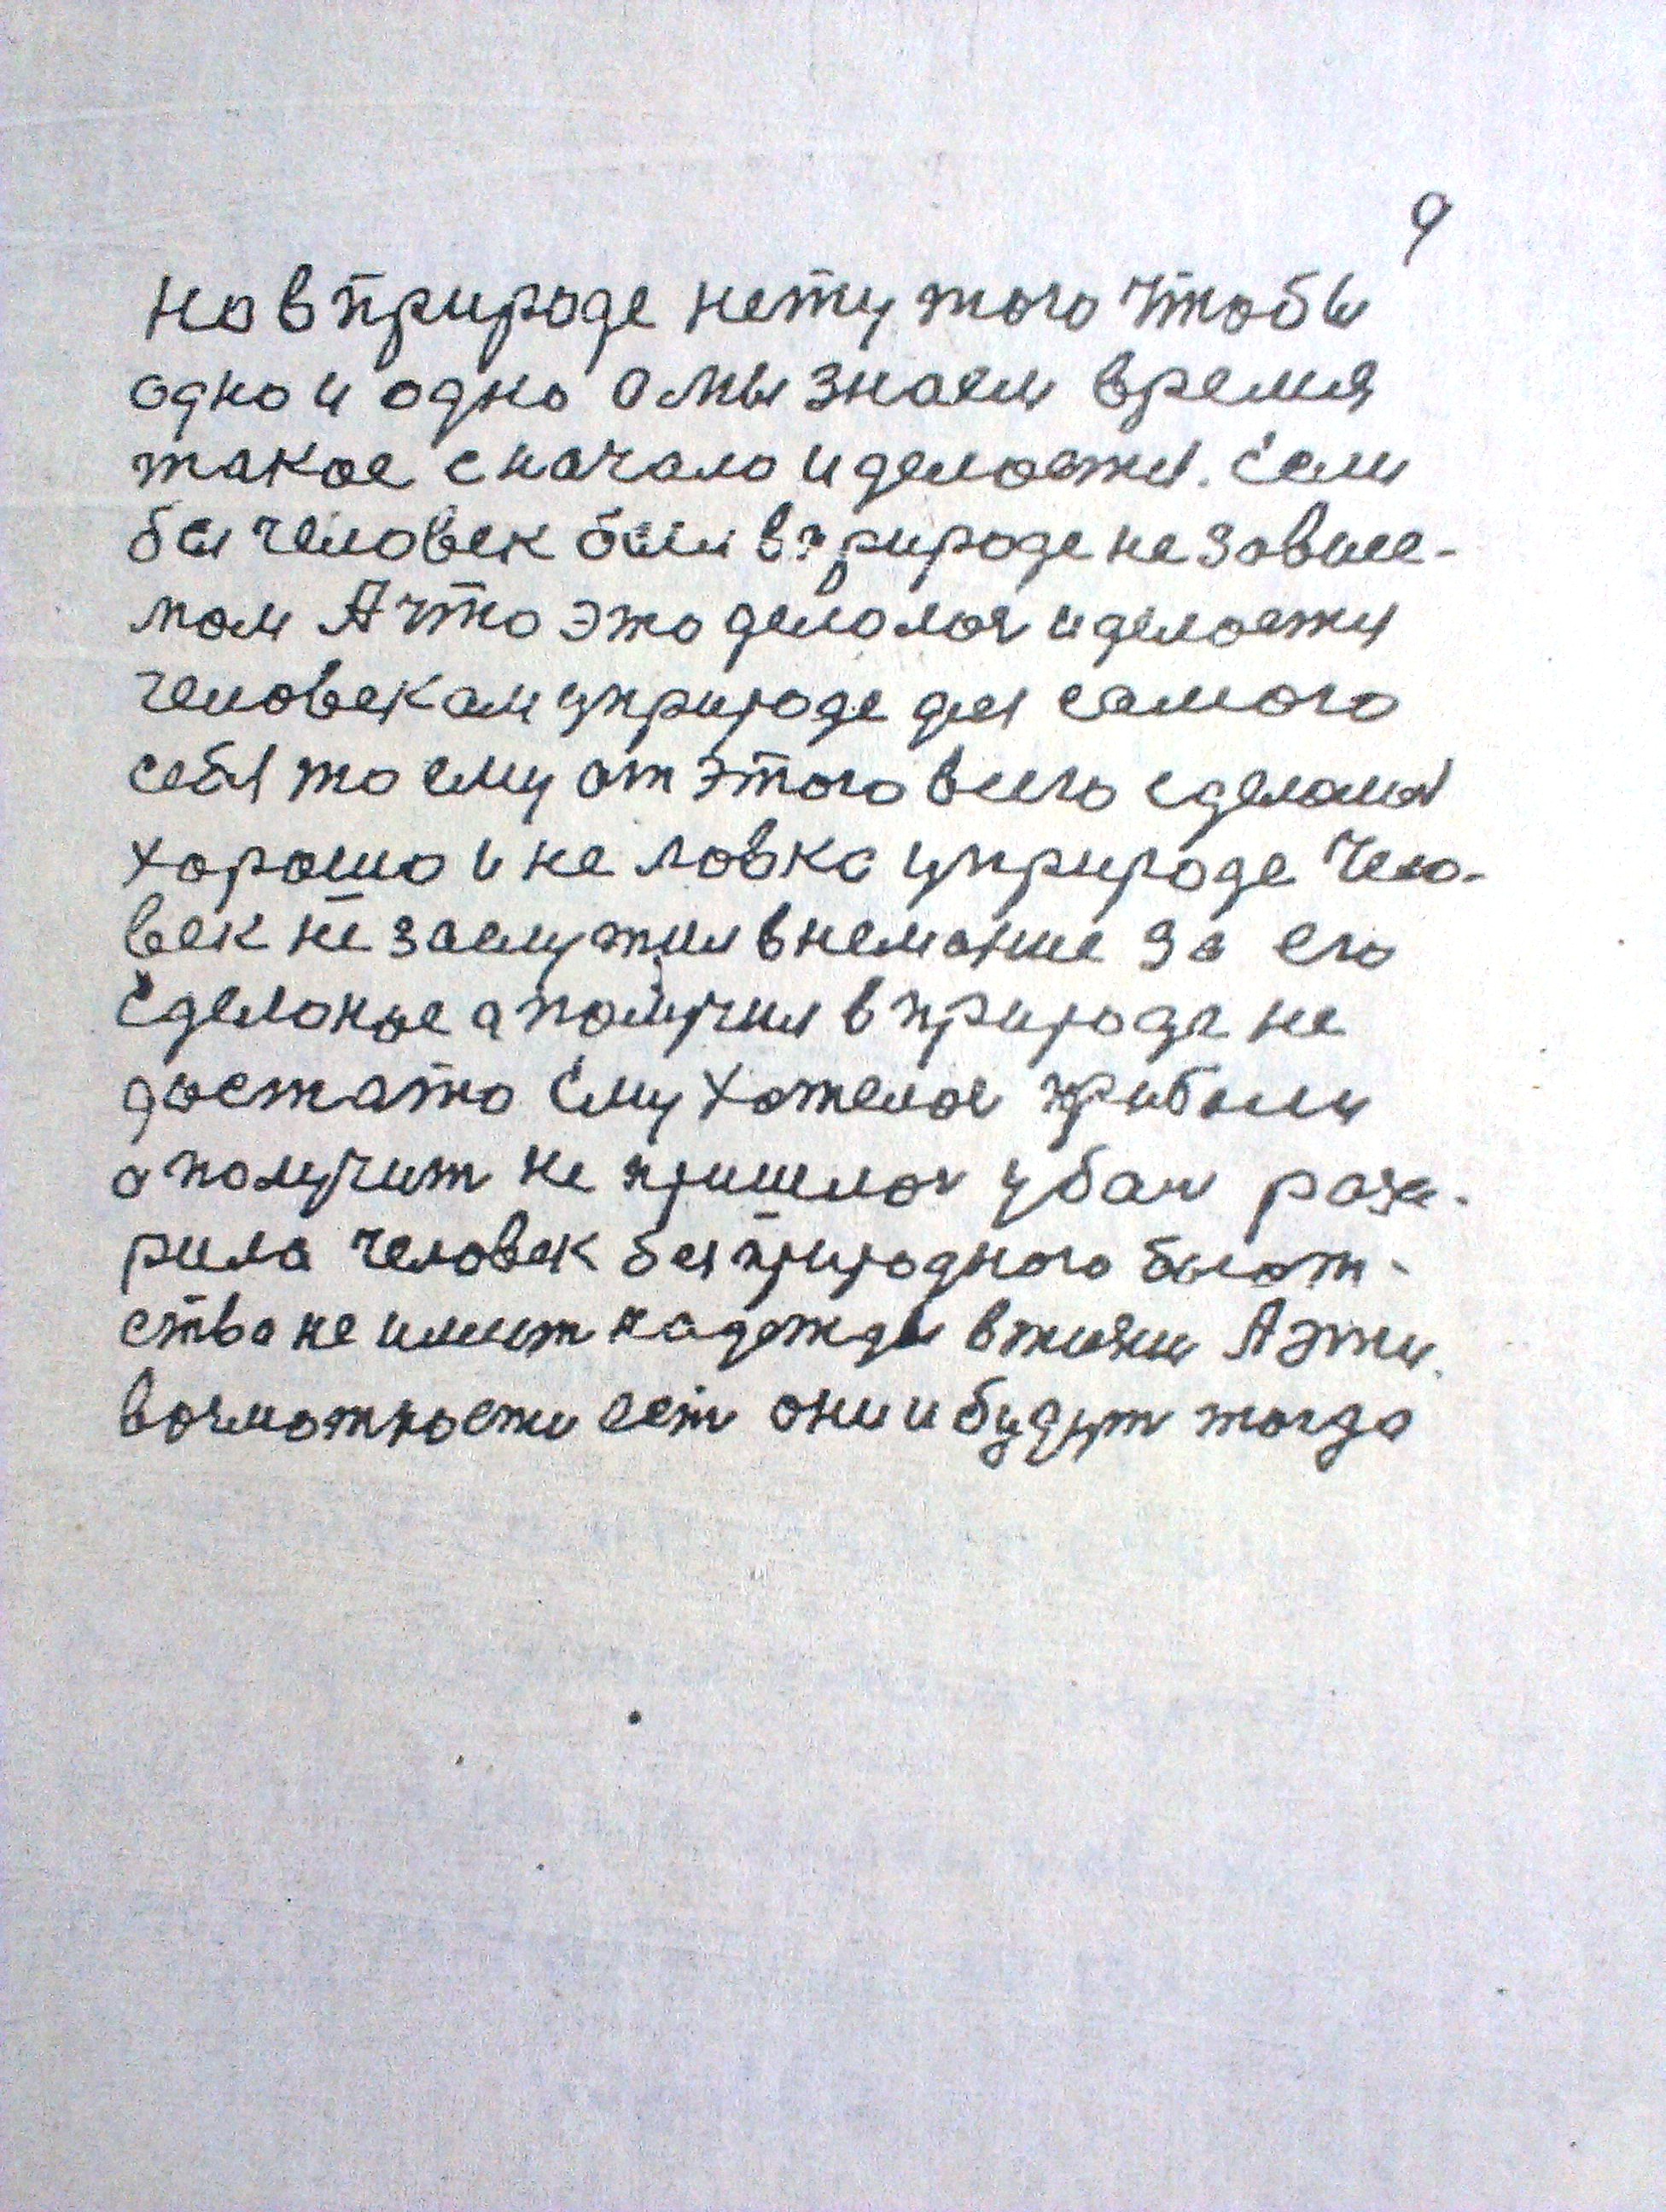 9
но в природе нету того чтобы
одно и одно а мы знаем время
такое с начало и делоется. Если
бы человек был в природе не зависе-
мом А что это делолоя и делоется
человекам уприроде для самого
себя то ему от этого всего сделался
хорошо и не ловко уприроде Чело-
век не заслужил внемание за его
Сделоное а получил в природе не
достато Ему хотелоя прибыли
а получит не пришлоя убыт разо-
рила человек без природного богот-
ства не имеит надежды в жизни А эти
возможности ест они и будут тогда